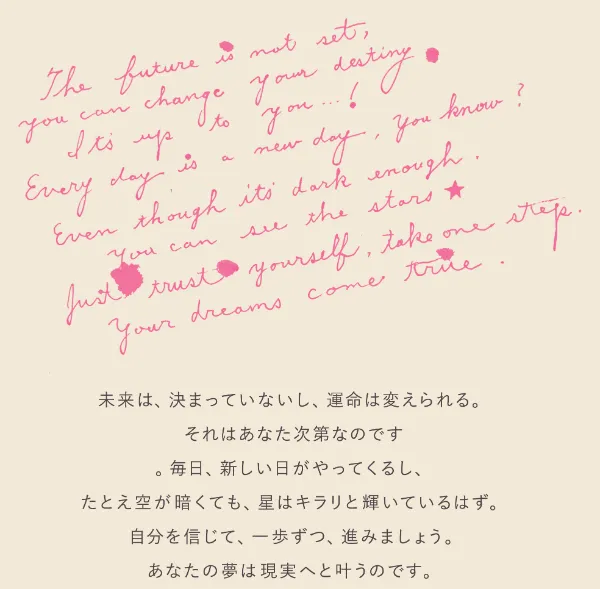 The future is not set,
you can change your destiny.
It's up to you...!
Every day is a new day, you know?
Even though it's dark enough.
you can see the stars★
Just trust yourself, take one step.
Your dreams come true.
未来は、決まっていないし、運命は変えられる。
それはあなた次第なのです
。毎日、新しい日がやってくるし、
たとえ空が暗くても、星はキラリと輝いているはず。
自分を信じて、一歩ずつ、進みましょう。
あなたの夢は現実へと叶うのです。